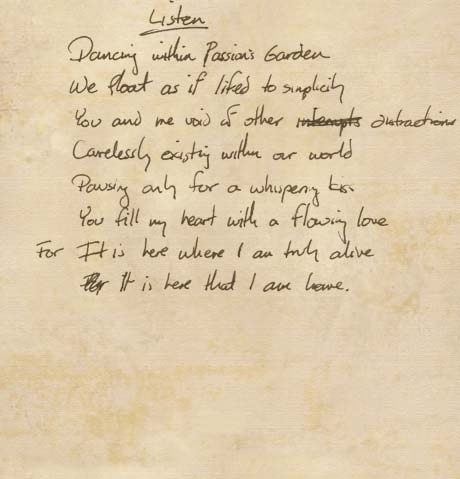 Listen
Dancing within Passion's Garden
We float as if liked to simplicity
You and me void of other interupts distractions
Carelessly existing within our world
Pausing only for a whispering kiss
You fill my heart with a flowing love
For It is here where I am truly alive
It is here that I am home.